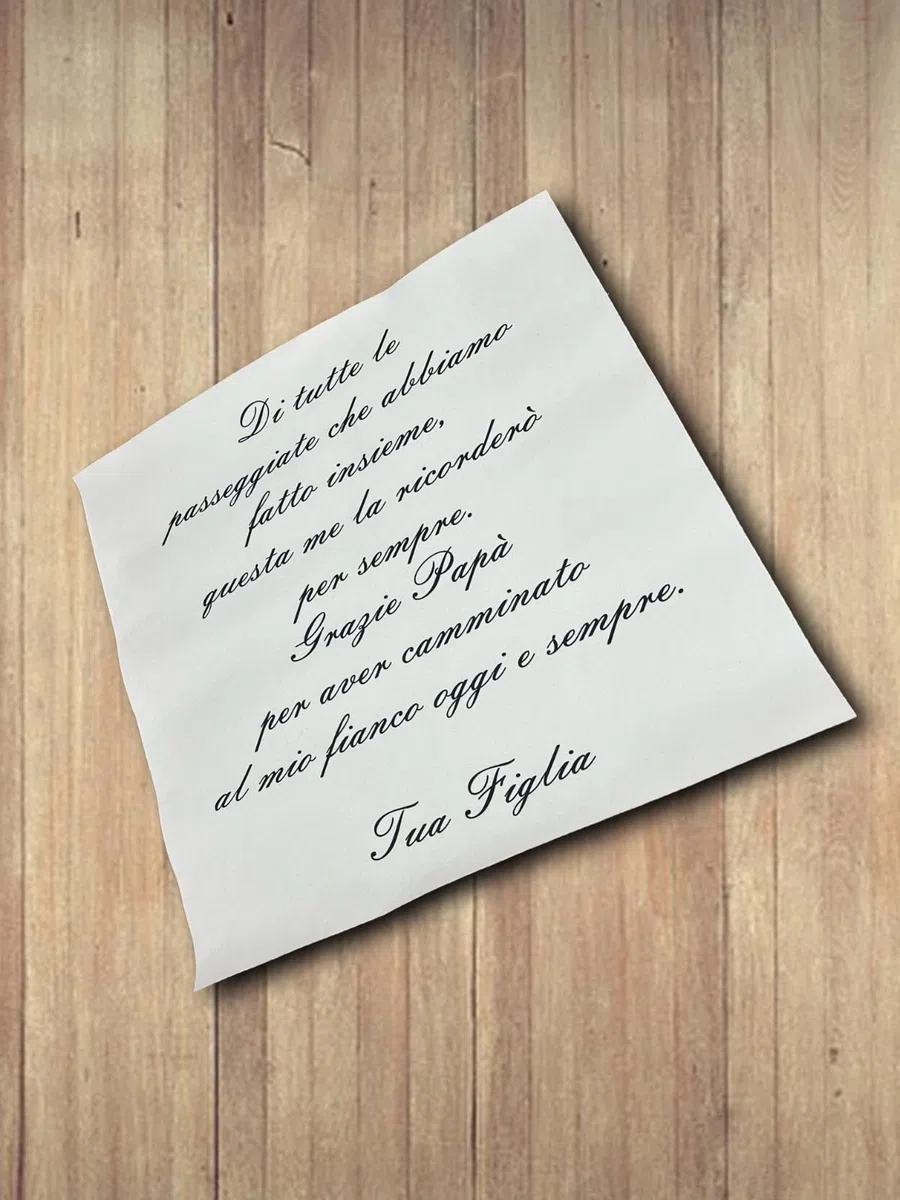 Di tutte le
passeggiate che abbiamo
fatto insieme,
questa me la ricorderò
per sempre.
Grazie Papà
per aver camminato
al mio fianco oggi e sempre.
Tua Figlia